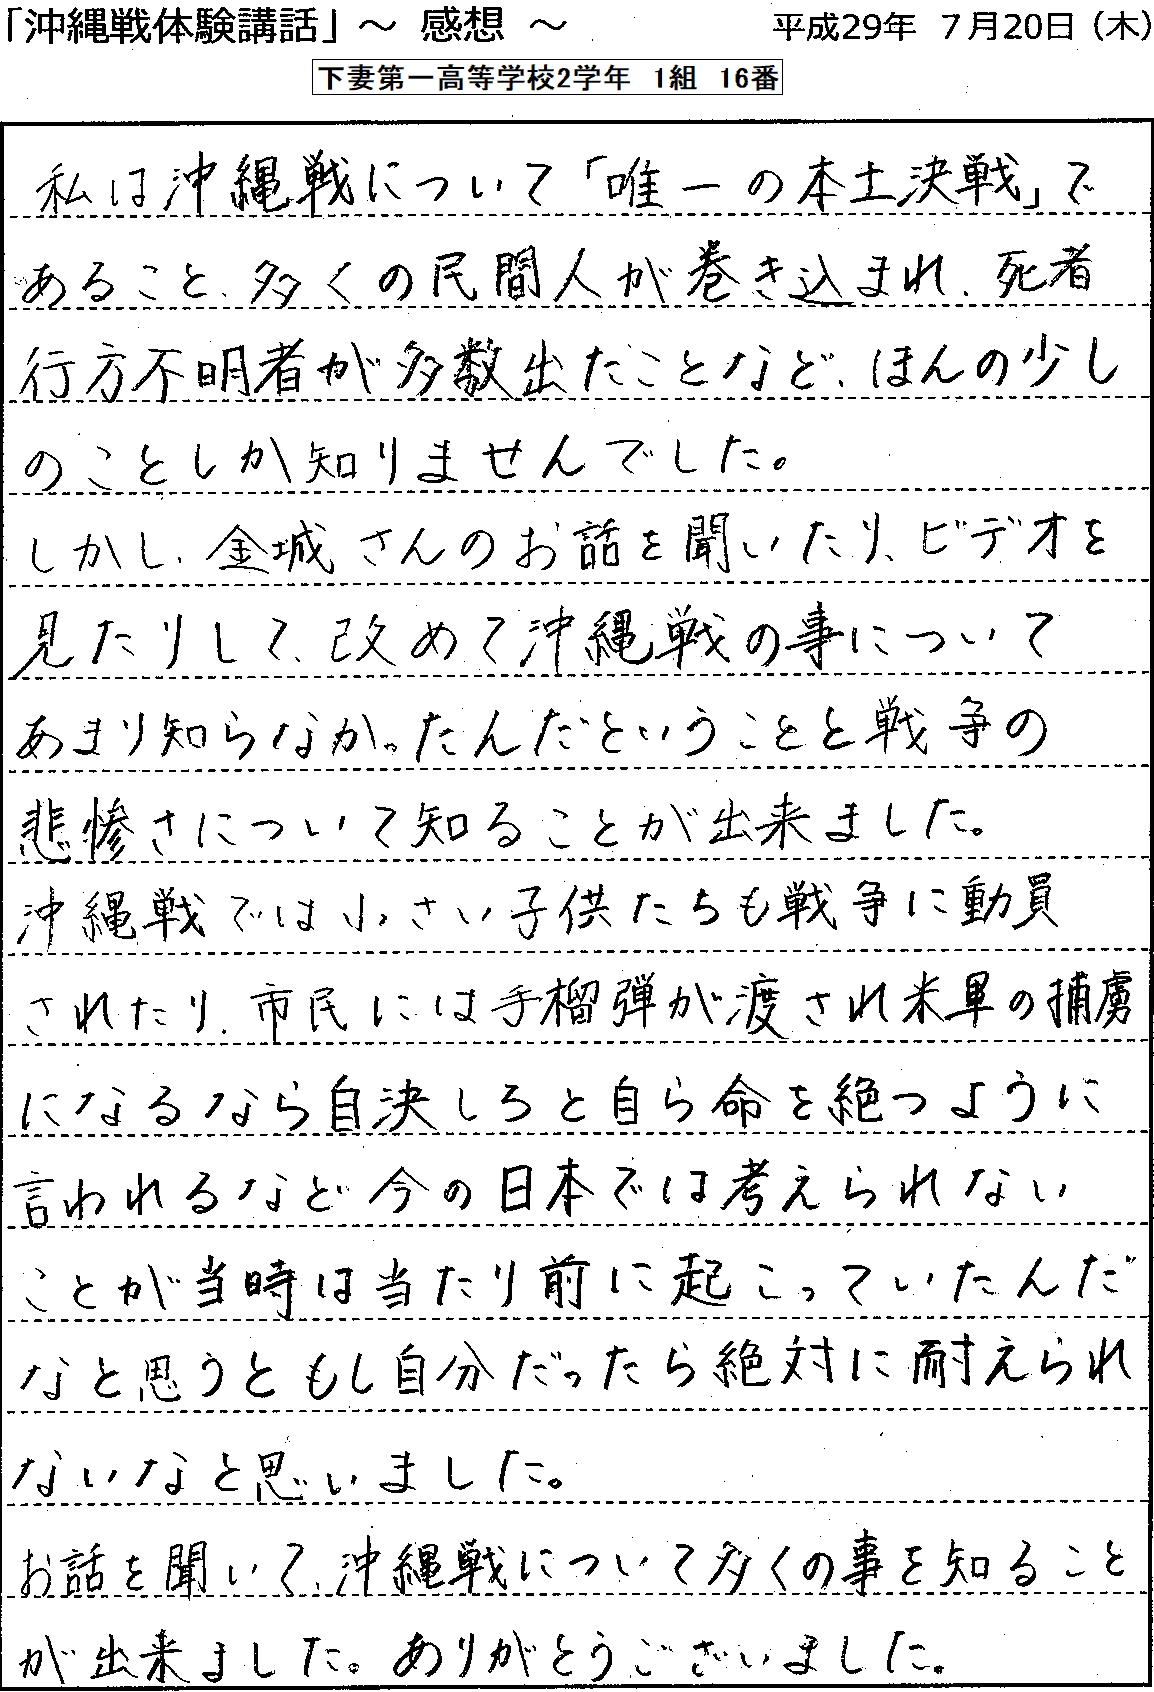 「沖縄戦体験講話」～ 感想 ～ 平成29年 7月20日（木）
下妻第一高等学校2学年 1組 16番
私は沖縄戦について「唯一の本土決戦」で
あること、多くの民間人が巻き込まれ、死者
行方不明者が多数出たことなど、ほんの少し
のことしか知りませんでした。
しかし、金城さんのお話を聞いたり、ビデオを
見たりして、改めて沖縄戦の事について
あまり知らなかったんだということと戦争の
悲惨さについて知ることが出来ました。
沖縄戦では小さい子供たちも戦争に動員
されたり、市民には手榴弾が渡され米軍の捕虜
になるなら自決しろと自ら命を絶つように
言われるなど今の日本では考えられない
ことが当時は当たり前に起こっていたんだ
なと思うともし自分だったら絶対に耐えられ
ないなと思いました。
お話を聞いて、沖縄戦について多くの事を知ること
が出来ました。ありがとうございました。